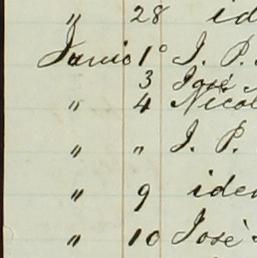 " 28 id
Junio 1° J. P.
3 José
" 4 Nicol
" " J. P.
" 9 iden
" 10 José